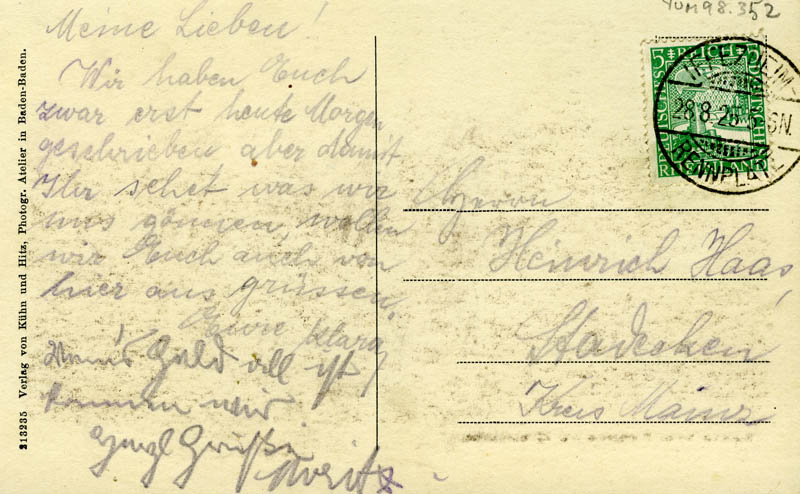 YUM98.352
Meine Lieben!
Wir haben Euch
zwar erst heute Morgen
geschrieben aber damit
Ihr sehet was wir
uns gönnen, wollen
wir Euch auch von
hier aus grüssen.
Eure Klara
Wenn's Geld all ist
kommen wir
Herzl Grüße
Moritz
Herrn
Heinrich Haas,
Stadecken
Kreis Mainz
5 DEUTSCHES REICH 5
IFFEZHEIM-
28.8.25. 6-7N.
RENNPLATZ
213235 Verlag von Kühn und Hitz, Photogr. Atelier in Baden-Baden.